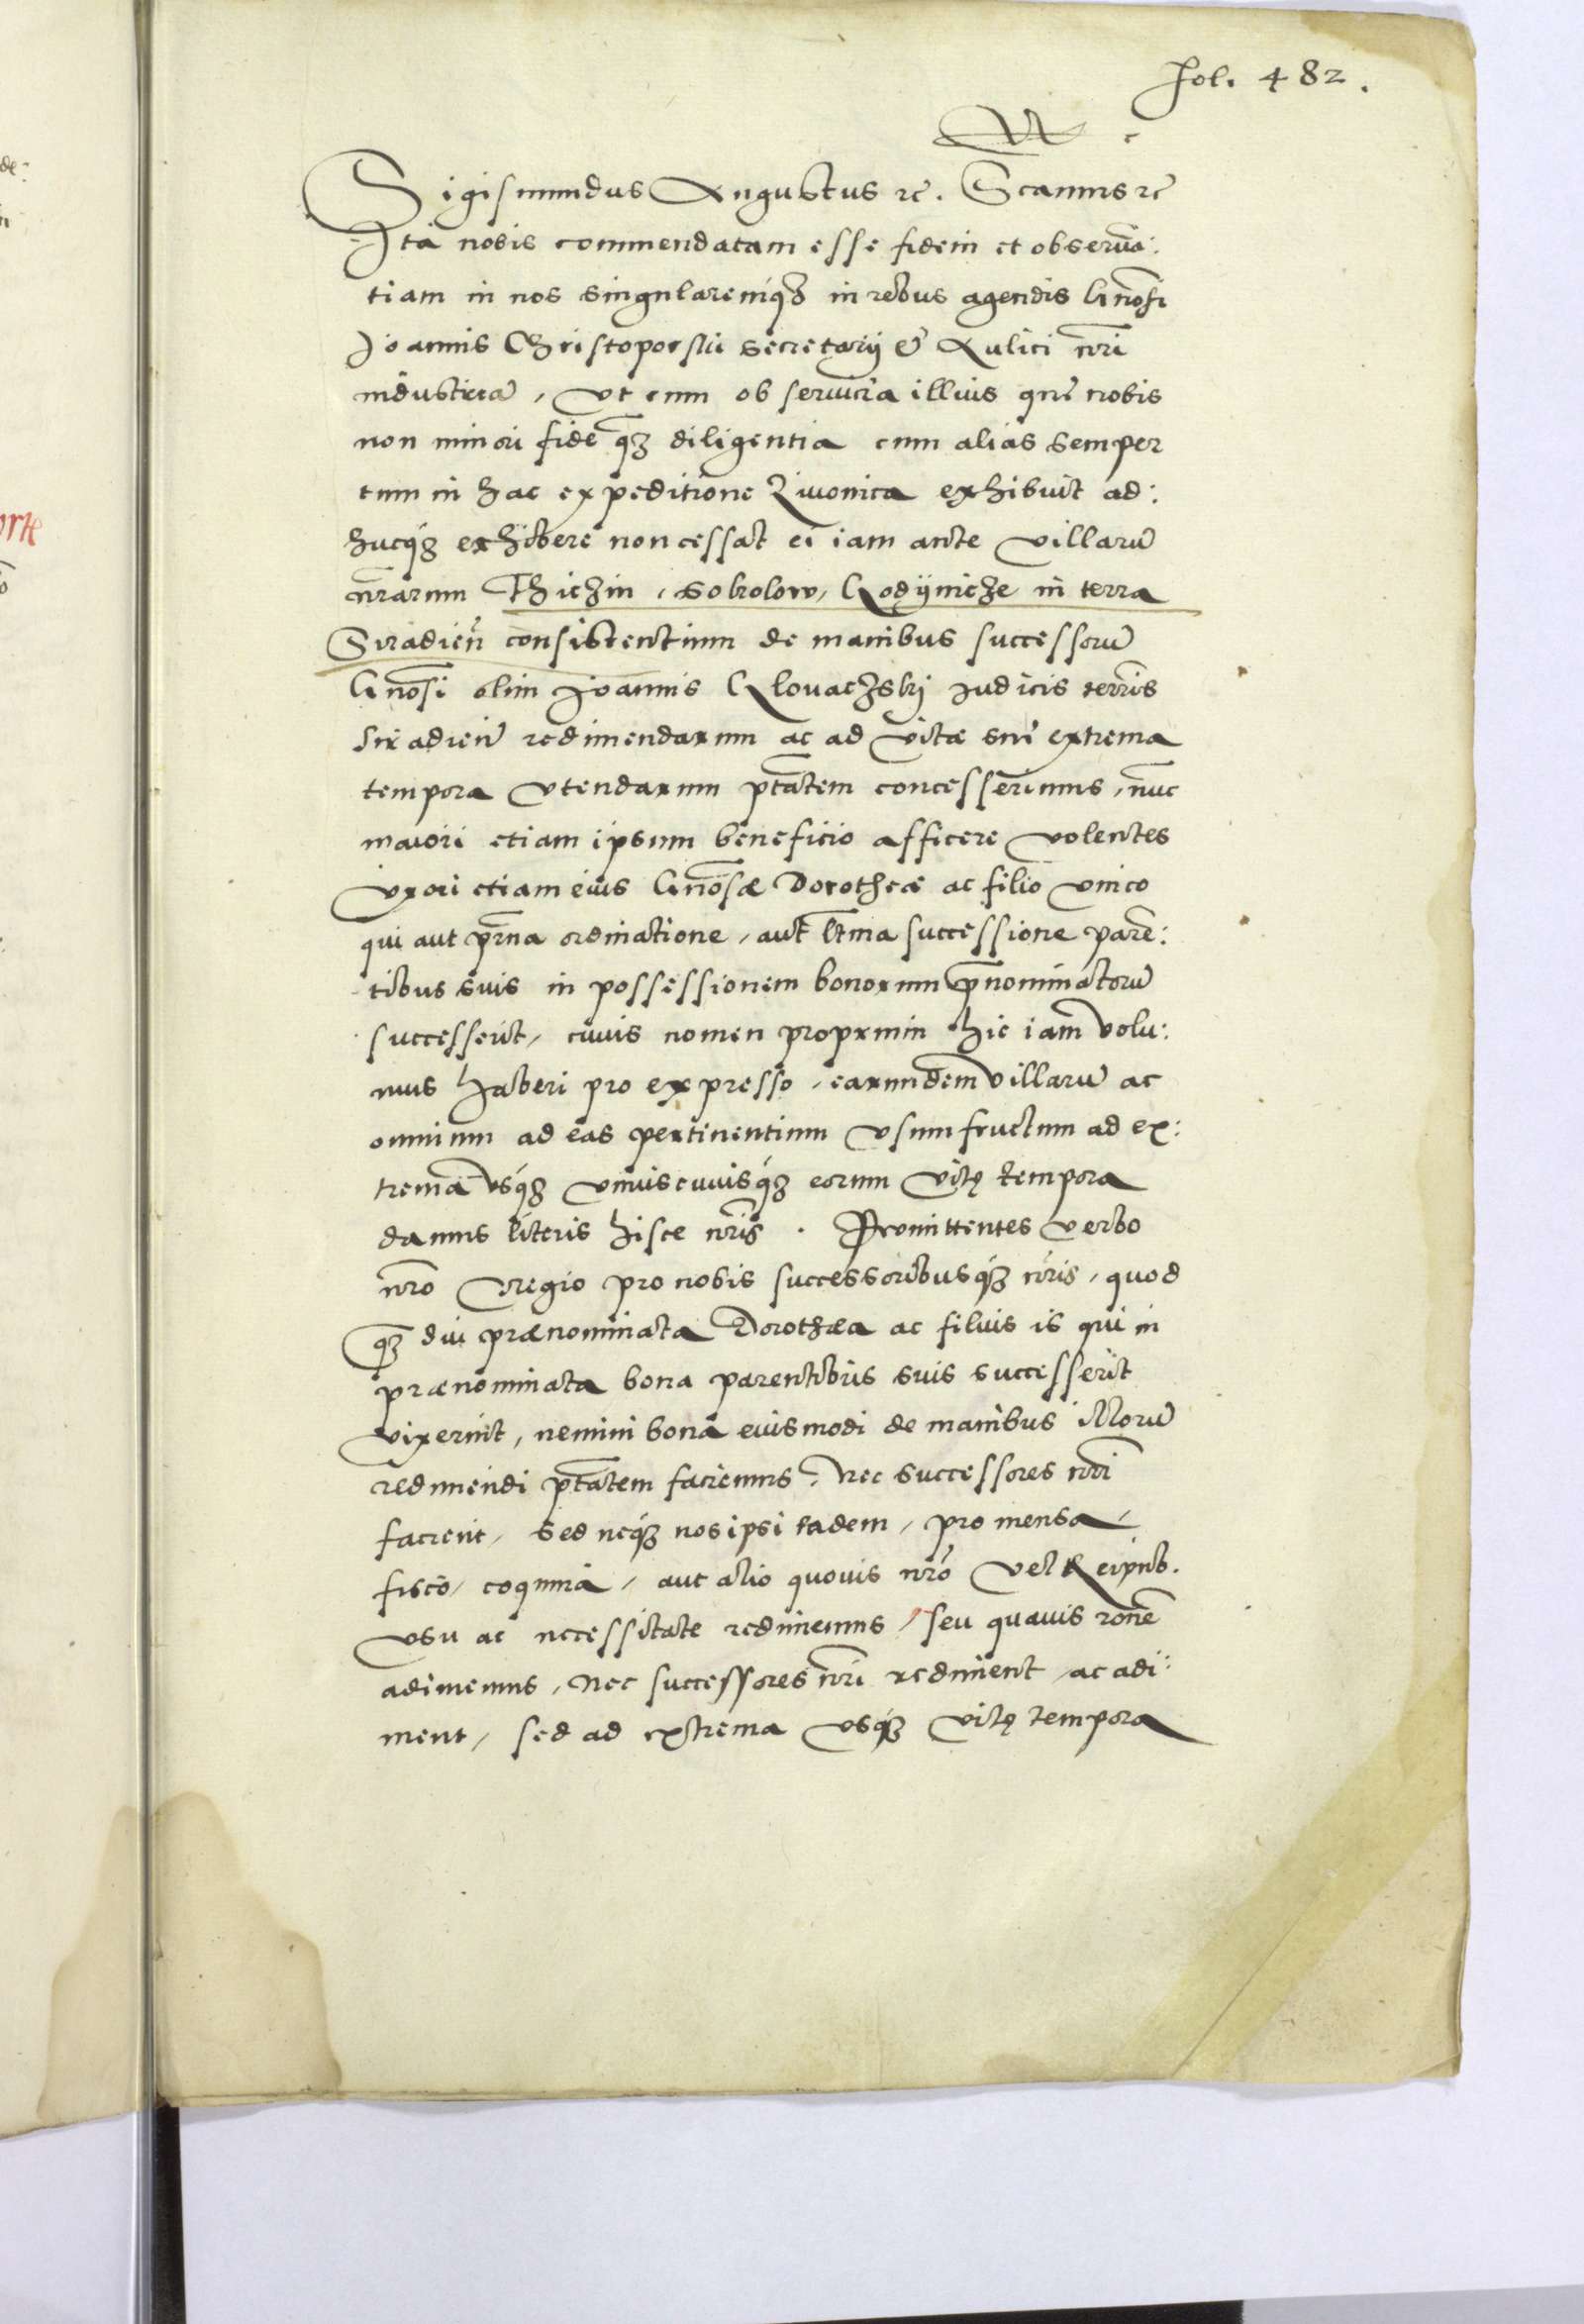 Fol. 482.
Sigismundus Augustus rc. Scanns rc
Ita nobis commendatam esse fidem et observā:
tiam in nos singularemq₃ in rebus agendis Gn̄osi
Joannis Christoporski secretarij & Aulici n̄ri
industriā, ut cum ob servicia illius que nobis
non minori fide q₃ diligentia cum alias semper
tum in hac expeditione Livonica exhibuit ad:
hucq₃ exhibere non cessat ei iam ante villarū
n̄rarum Thiczin, Sokolow, Godÿnicze in terra
Siradieñ consistentium de manibus successorū
Gn̄osi olim Joannis Glovaczskij Judicis terrīs
Siradieñ redimendarum ac ad vitæ sue extrema
tempora utendarum ptātem concesserimus, nūc
maiori etiam ipsum beneficio afficere volentes
uxori etiam eius Gn̄osæ Dorotheæ ac filio unico
qui aut pr̄na ordinatione, aut lt̄ma successione parē:
tibus suis in possessionem bonorum prænominatorū
successerit, cuius nomen proprium hic iam volu:
mus haberi pro expresso, earundem villarū ac
omnium ad eas pertinentium usumfructum ad ex:
trema usq₃ uniuscuiusq₃ eorum vitę tempora
damus literis hisce n̄ris. Promittentes verbo
n̄ro regio pro nobis successoribusq₃ n̄ris, quod
q₃ diu prænominata Dorothæa ac filius is qui in
prænominata bona parentibus suis successerit
vixerint, nemini bona eiusmodi de manibus illorū
redimendi ptātem faciemus, nec successores n̄ri
facient, sed neq₃ nos ipsi eadem, pro mensa,
fisco, coquina, aut alio quovis n̄ro vel Reipub.
usu ac necessitate redimemus, seu quavis rōne
adimemus, nec successores n̄ri rediment, ac adi:
ment, sed ad extrema usq₃ vitę tempora